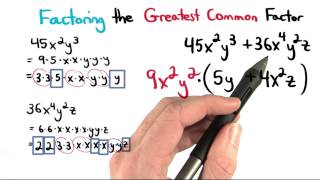 Factoring the Greatest Common Factor
45x²y³
= 9·5·x·x·y·y·y
= 3·3·5·x·x·y·y·y
36x⁴y²z
= 6·6·x·x·x·x·y·y·z
= 2·2·3·3·x·x·x·x·y·y·z
45x²y³ + 36x⁴y²z
9x²y²·(5y + 4x²z)